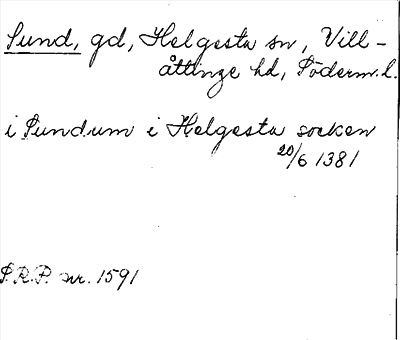 Sund, gd, Helgesta sn, Vill-
åttinge hd, Söderm.l.
i Sundum i Helgesta socken
20/6 1381
S.R.P. nr. 1591